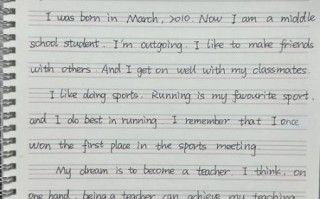 I was born in March, 2010. Now I am a middle
school student. I'm outgoing. I like to make friends
with others. And I get on well with my classmates.
I like doing sports. Running is my favourite sport,
and I do best in running. I remember that I once
won the first place in the sports meeting.
My dream is to become a teacher. I think, on
one hand, being a teacher can achieve my teaching